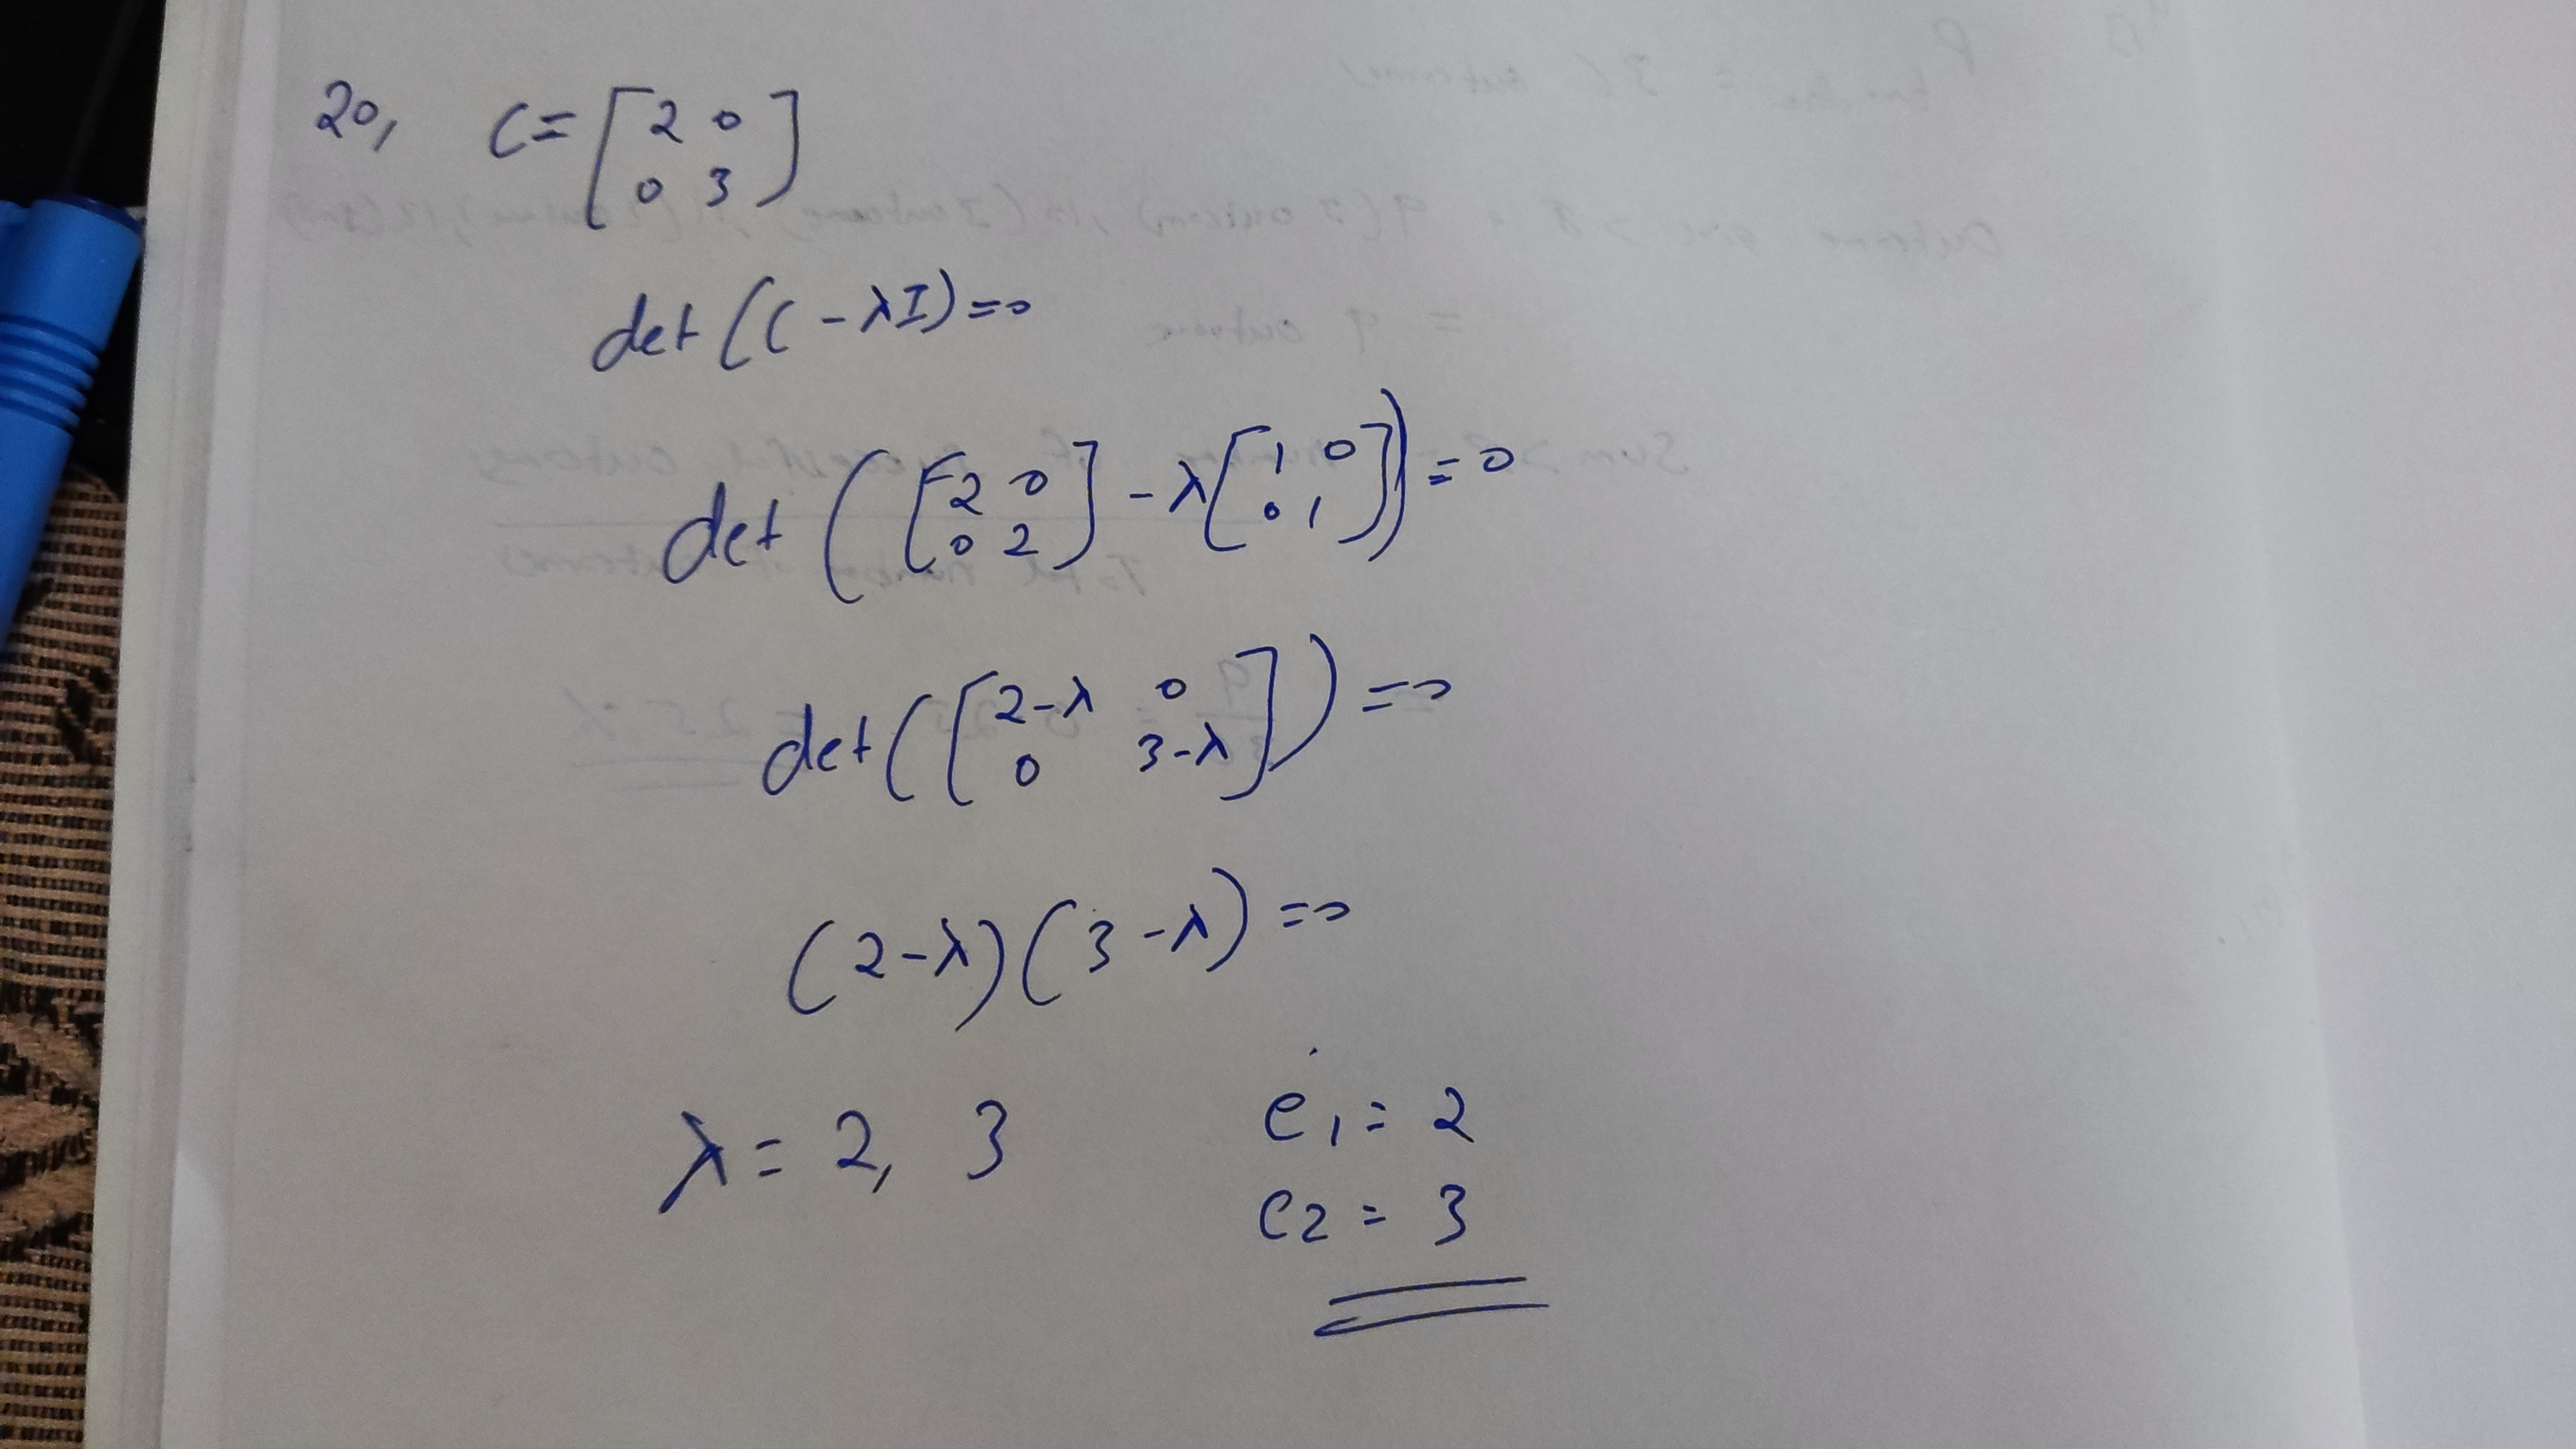 20, C = [2 0
0 3]
det (C - λI) = 0
det ([2 0
0 2] - λ[1 0
0 1]) = 0
det ([2-λ 0
0 3-λ]) = 0
(2-λ)(3-λ) = 0
λ = 2, 3
e1 = 2
e2 = 3